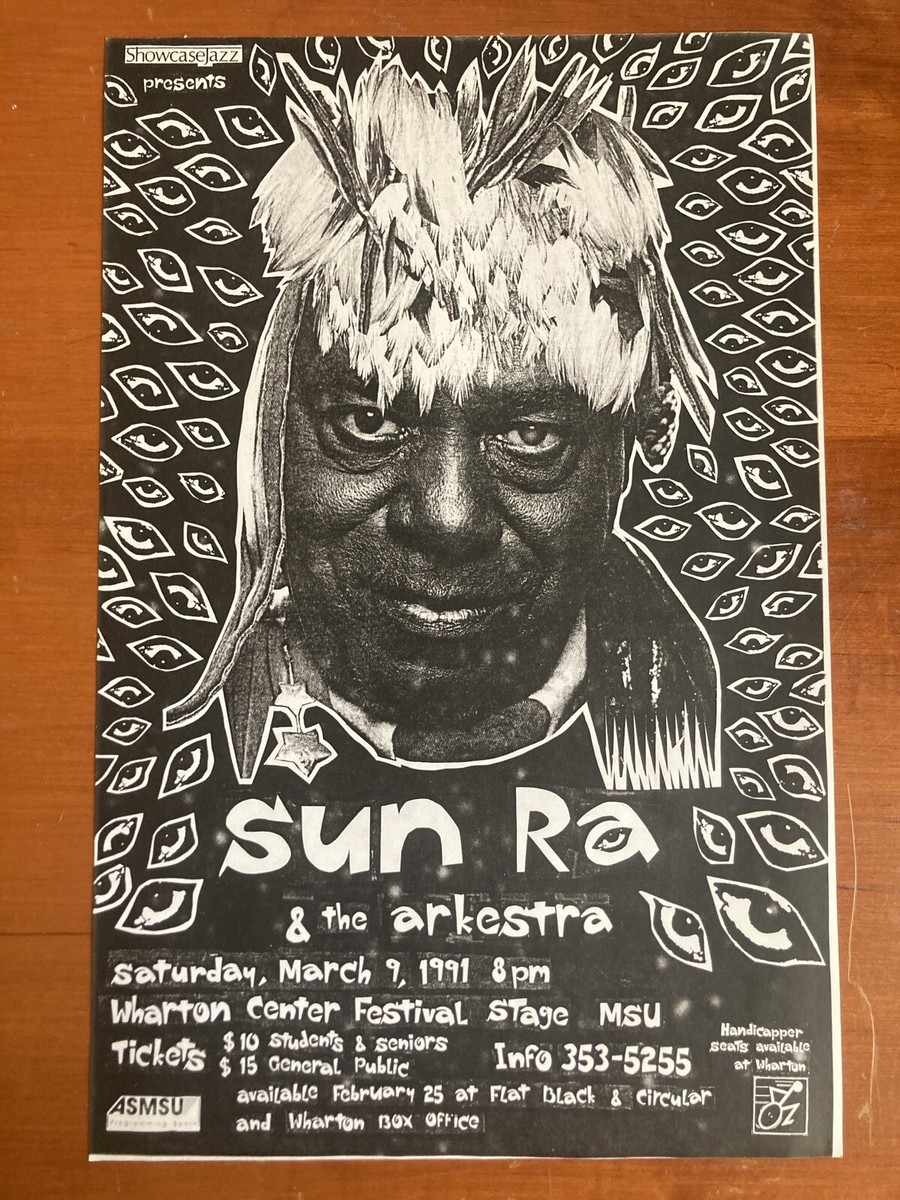 ShowcaseJazz
presents
Sun Ra
& the arkestra
saturday, March 9, 1991 8pm
Wharton Center Festival Stage MSU
Tickets $10 students & seniors
$15 General Public
Info 353-5255
Handicapper
seats available
at Wharton
available February 25 at Flat Black & Circular
and Wharton Box Office
ASMSU
Programming Board